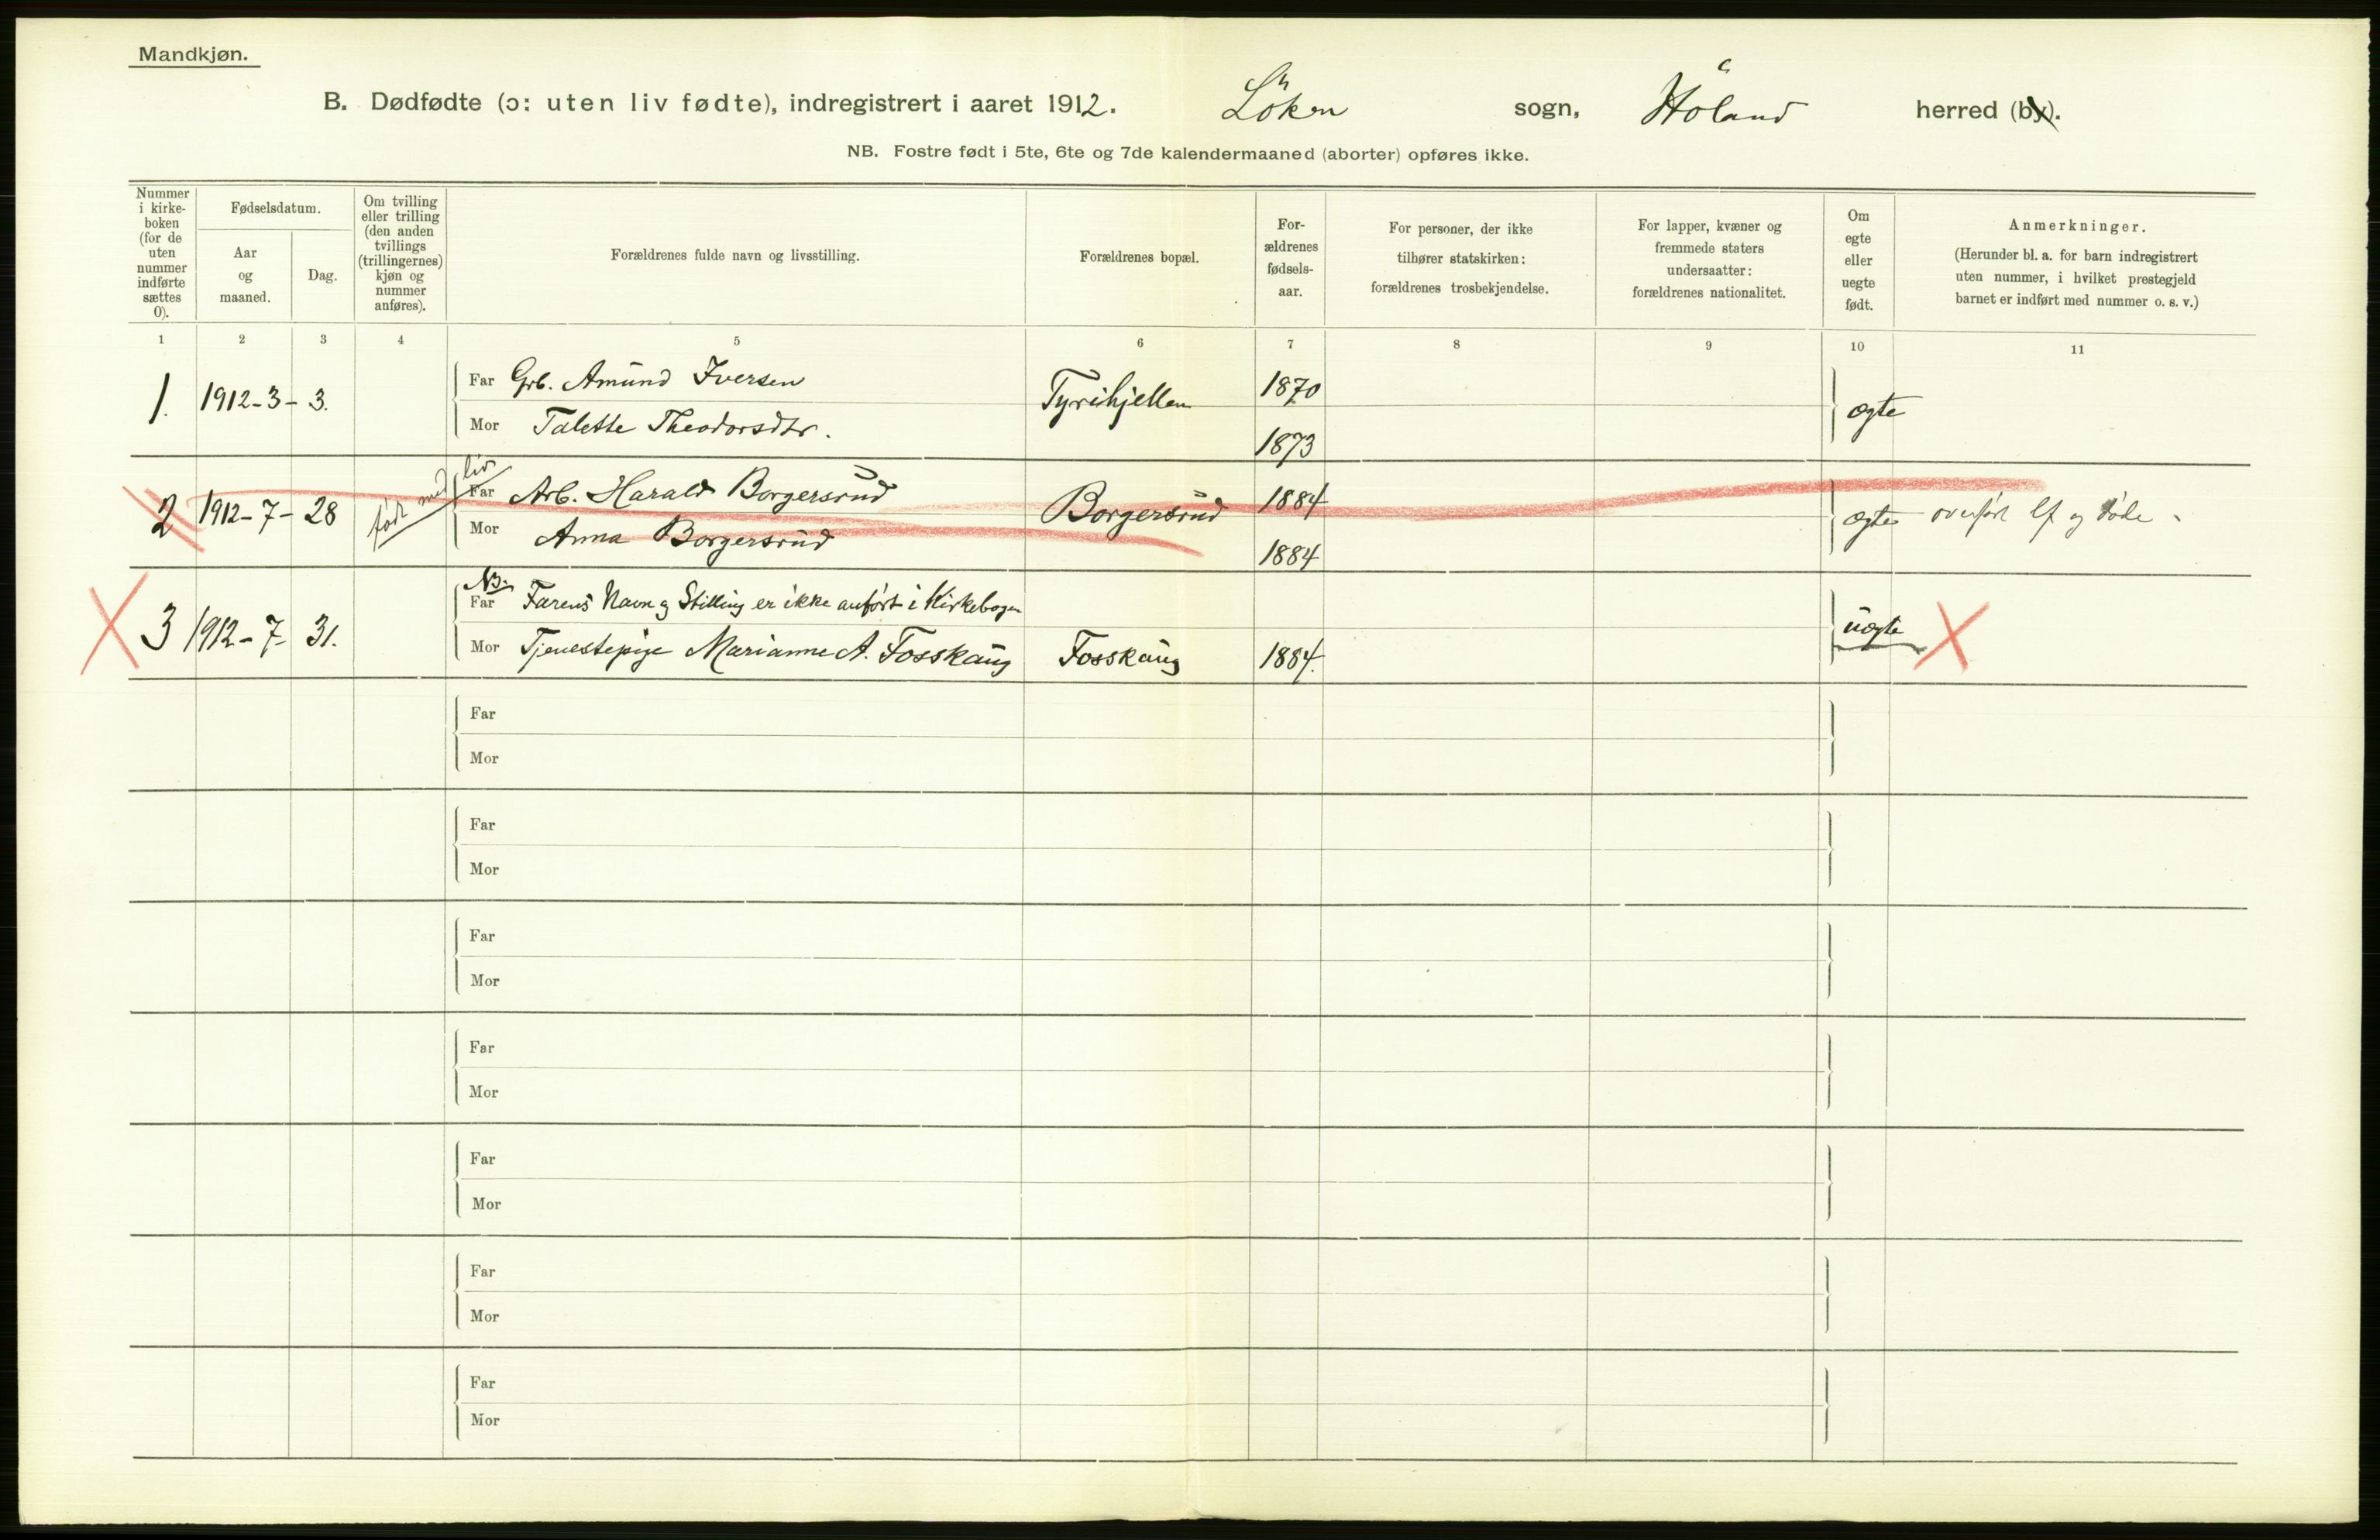 Mandkjøn.
B. Dødfødte (ɔ: uten liv fødte), indregistrert i aaret 1912. Löken sogn, Höland herred (by).
NB. Fostre født i 5te, 6te og 7de kalendermaaned (aborter) opføres ikke.
Nummer i kirke-boken (for de uten nummer indførte sættes 0).
Fødselsdatum.
Aar og maaned.
Dag.
Om tvilling eller trilling (den anden tvillings (trillingernes) kjøn og nummer anføres).
Forældrenes fulde navn og livsstilling.
Forældrenes bopæl.
For-ældrenes fødsels-aar.
For personer, der ikke tilhører statskirken: forældrenes trosbekjendelse.
For lapper, kvæner og fremmede staters undersaatter: forældrenes nationalitet.
Om egte eller uegte født.
Anmerkninger.
(Herunder bl. a. for barn indregistrert uten nummer, i hvilket prestegjeld barnet er indført med nummer o. s. v.)
1 2 3 4 5 6 7 8 9 10 11
1. 1912-3- 3. Far Grb. Amund Iversen Tyrihjellen 1870 ægte
Mor Talette Theodorsdtr. 1873
2 1912-7- 28 født med liv Far Arb. Harald Borgersrud Borgersrud 1884 ægte overført lf og døde
Mor Anna Borgersrud 1884
3 1912-7- 31. NB. Far Farens Navn og Stilling er ikke anført i Kirkebogen uægte
Mor Tjenestepige Marianne A. Fosskaug Fosskaug 1884.
Far
Mor
Far
Mor
Far
Mor
Far
Mor
Far
Mor
Far
Mor
Far
Mor